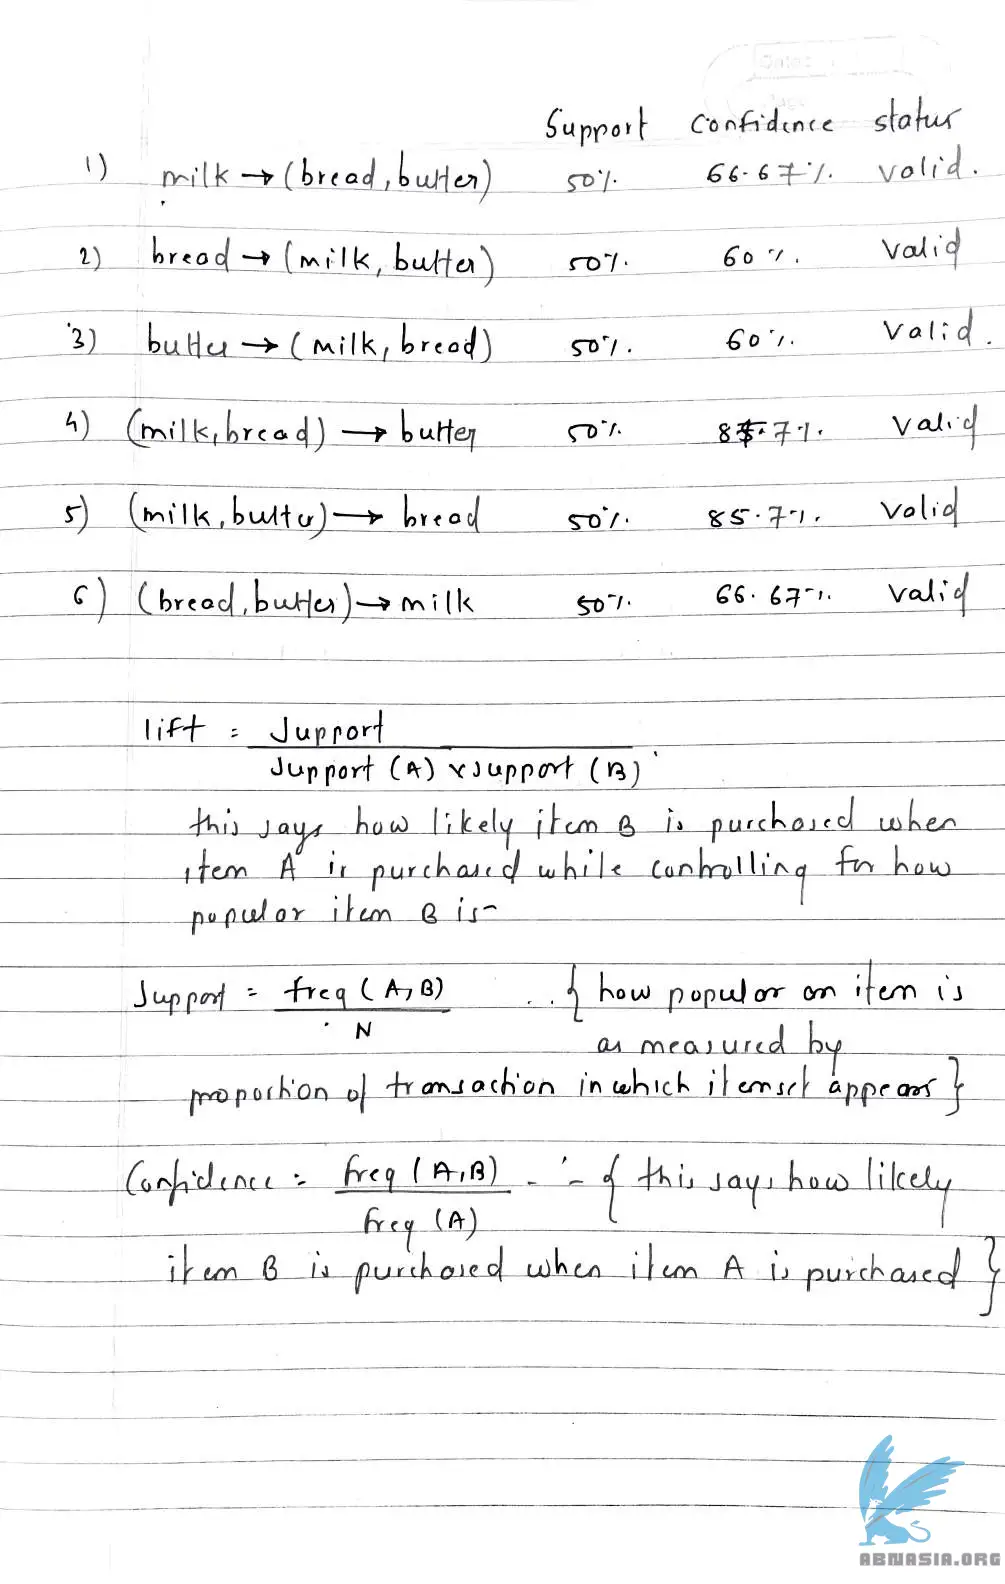 Support Confidence status
1) milk → (bread, butter) 50% 66.67% valid.
2) bread → (milk, butter) 50% 60% valid
3) butter → (milk, bread) 50% 60% valid.
4) (milk, bread) → butter 50% 85.7% valid
5) (milk, butter) → bread 50% 85.7% valid
6) (bread, butter) → milk 50% 66.67% valid
lift = Support
Support (A) x support (B)
this says how likely item B is purchased when
item A is purchased while controlling for how
popular item B is-
Support = freq (A, B) ... { how popular an item is
N
as measured by
proportion of transaction in which itemset appears }
Confidence = freq (A, B) - - - { this says how likely
freq (A)
item B is purchased when item A is purchased }
ABNASIA.ORG